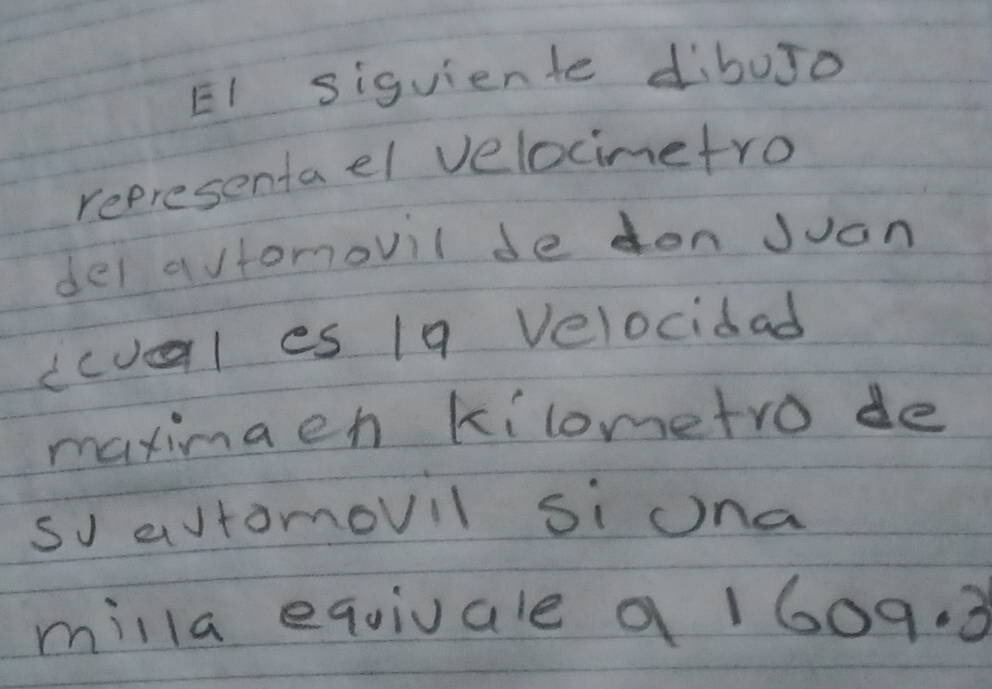 El siguiente dibujo
representa el velocimetro
del automovil de don Juan
¿cual es la velocidad
maxima en kilometro de
su automovil si una
milla equivale a 1609.3